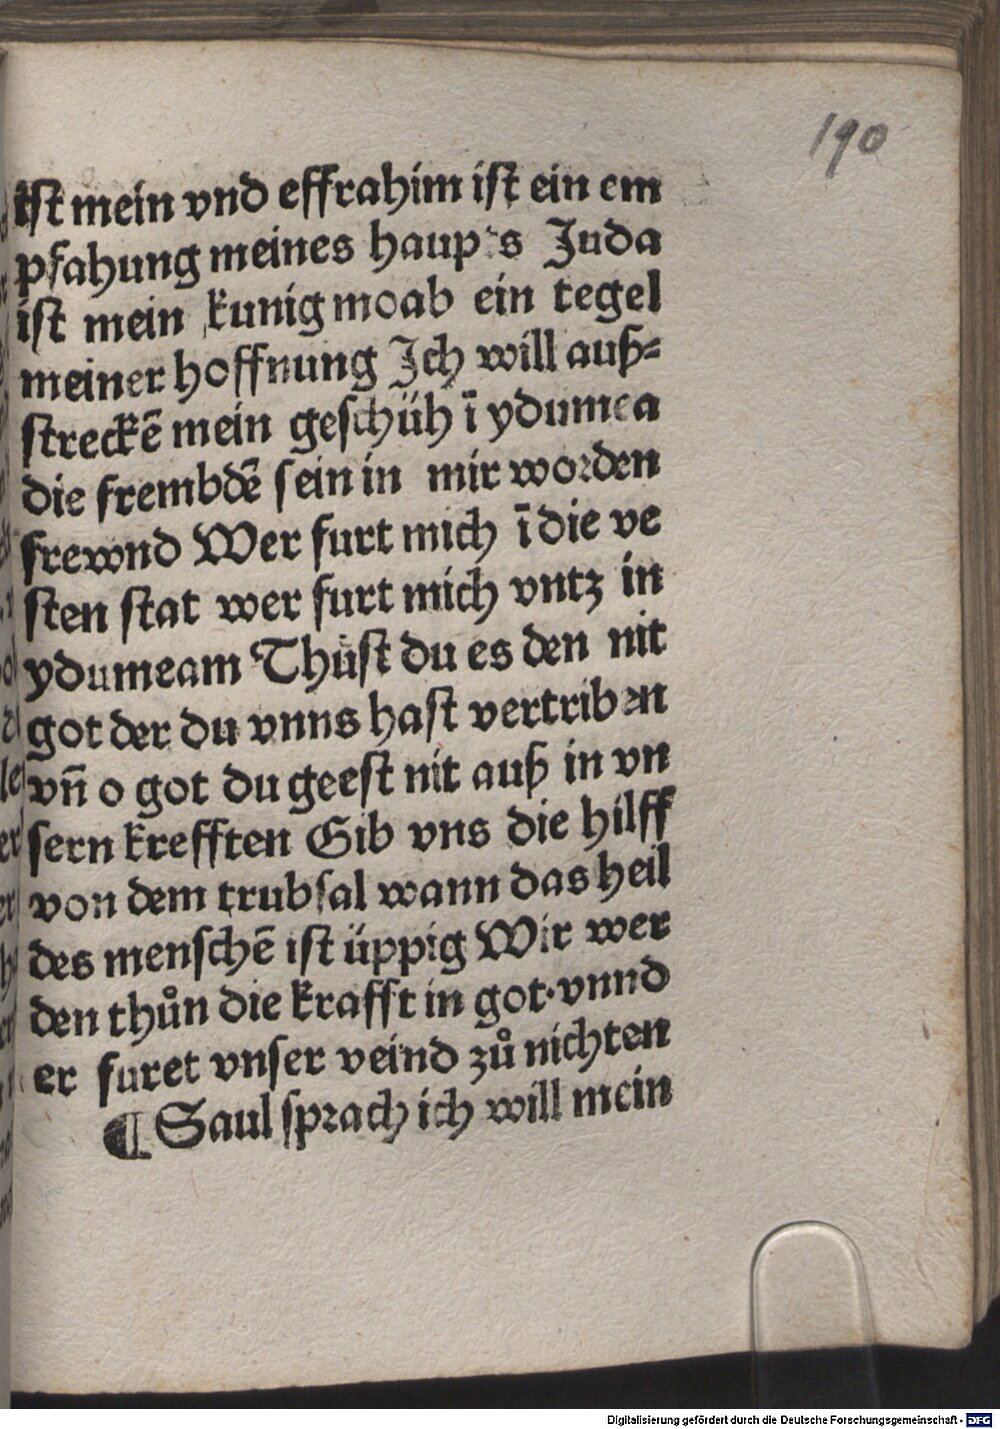 190
ist mein vnd effrahim ist ein em
pfahung meines haupts Juda
ist mein kunig moab ein tegel
meiner hoffnung Jch will auß=
streckē mein geschüh ī ydumea
die frembdē sein in mir worden
frewnd Wer furt mich ī die ve
sten stat wer furt mich vntz in
ydumeam Thuͤst du es den nit
got der du vnns hast vertriben
vn̄ o got du geest nit auß in vn
sern krefften Gib vns die hilff
von dem trubsal wann das heil
des menschē ist üppig Wir wer
den thůn die krafft in got·vnnd
er furet vnser veind zů nichten
¶ Saul sprach ich will mein
Digitalisierung gefördert durch die Deutsche Forschungsgemeinschaft - DFG